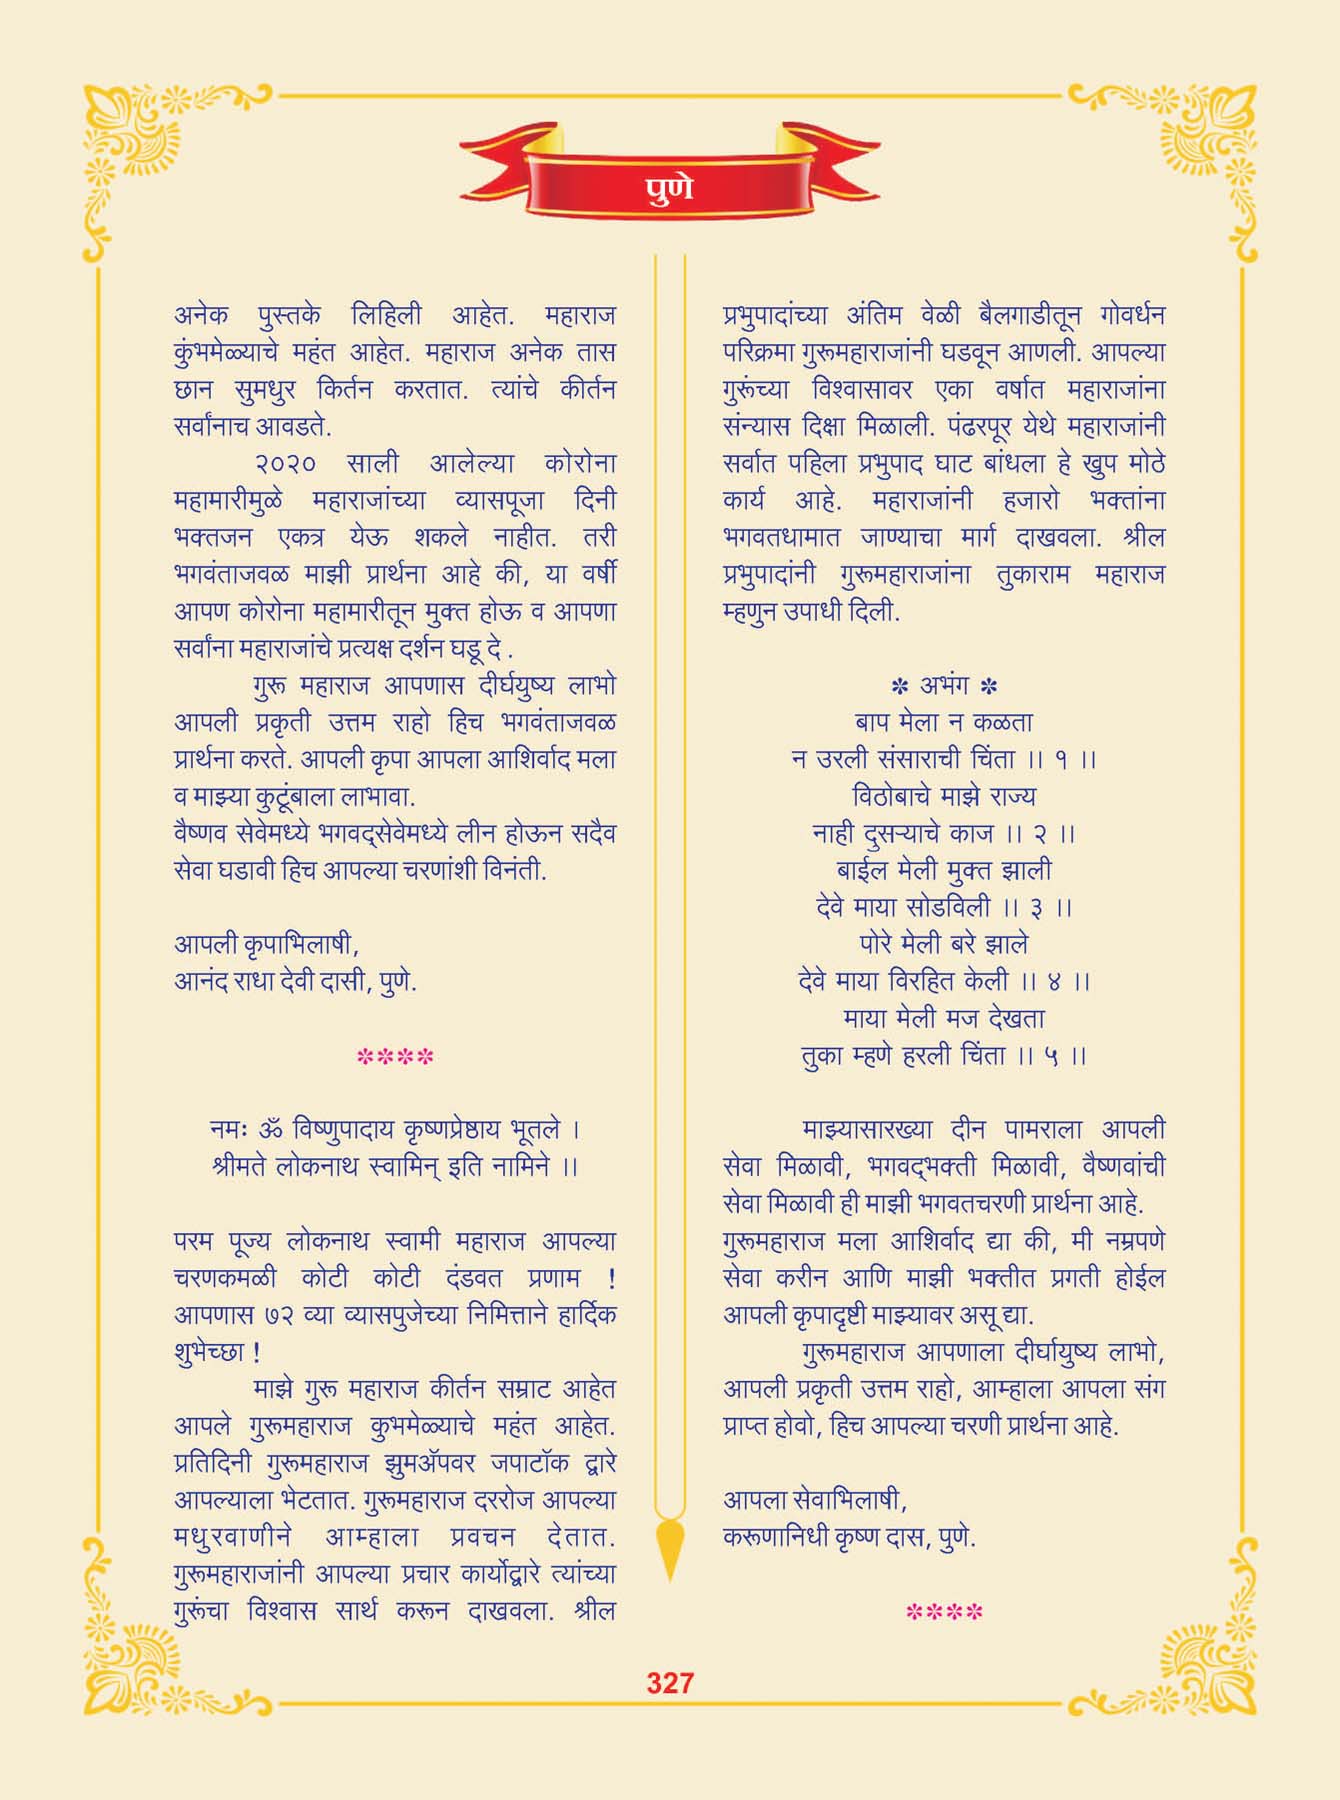 पुणे
अनेक पुस्तके लिहिली आहेत. महाराज
कुंभमेळ्याचे महंत आहेत. महाराज अनेक तास
छान सुमधुर किर्तन करतात. त्यांचे कीर्तन
सर्वांनाच आवडते.
२०२० साली आलेल्या कोरोना
महामारीमुळे महाराजांच्या व्यासपूजा दिनी
भक्तजन एकत्र येऊ शकले नाहीत. तरी
भगवंताजवळ माझी प्रार्थना आहे की, या वर्षी
आपण कोरोना महामारीतून मुक्त होऊ व आपणा
सर्वांना महाराजांचे प्रत्यक्ष दर्शन घडू दे .
गुरू महाराज आपणास दीर्घयुष्य लाभो
आपली प्रकृती उत्तम राहो हिच भगवंताजवळ
प्रार्थना करते. आपली कृपा आपला आशिर्वाद मला
व माझ्या कुटूंबाला लाभावा.
वैष्णव सेवेमध्ये भगवद्सेवेमध्ये लीन होऊन सदैव
सेवा घडावी हिच आपल्या चरणांशी विनंती.
आपली कृपाभिलाषी,
आनंद राधा देवी दासी, पुणे.
****
नमः ॐ विष्णुपादाय कृष्णप्रेष्ठाय भूतले ।
श्रीमते लोकनाथ स्वामिन् इति नामिने ।।
परम पूज्य लोकनाथ स्वामी महाराज आपल्या
चरणकमळी कोटी कोटी दंडवत प्रणाम !
आपणास ७२ व्या व्यासपुजेच्या निमित्ताने हार्दिक
शुभेच्छा !
माझे गुरू महाराज कीर्तन सम्राट आहेत
आपले गुरूमहाराज कुभमेळ्याचे महंत आहेत.
प्रतिदिनी गुरूमहाराज झुमॲपवर जपाटॉक द्वारे
आपल्याला भेटतात. गुरूमहाराज दररोज आपल्या
मधुरवाणीने आम्हाला प्रवचन देतात.
गुरूमहाराजांनी आपल्या प्रचार कार्योद्वारे त्यांच्या
गुरूंचा विश्वास सार्थ करून दाखवला. श्रील
प्रभुपादांच्या अंतिम वेळी बैलगाडीतून गोवर्धन
परिक्रमा गुरूमहाराजांनी घडवून आणली. आपल्या
गुरूंच्या विश्वासावर एका वर्षात महाराजांना
संन्यास दिक्षा मिळाली. पंढरपूर येथे महाराजांनी
सर्वात पहिला प्रभुपाद घाट बांधला हे खुप मोठे
कार्य आहे. महाराजांनी हजारो भक्तांना
भगवतधामात जाण्याचा मार्ग दाखवला. श्रील
प्रभुपादांनी गुरूमहाराजांना तुकाराम महाराज
म्हणुन उपाधी दिली.
* अभंग *
बाप मेला न कळता
न उरली संसाराची चिंता ।। १ ।।
विठोबाचे माझे राज्य
नाही दुसऱ्याचे काज ।। २ ।।
बाईल मेली मुक्त झाली
देवे माया सोडविली ।। ३ ।।
पोरे मेली बरे झाले
देवे माया विरहित केली ।। ४ ।।
माया मेली मज देखता
तुका म्हणे हरली चिंता ।। ५ ।।
माझ्यासारख्या दीन पामराला आपली
सेवा मिळावी, भगवद्भक्ती मिळावी, वैष्णवांची
सेवा मिळावी ही माझी भगवतचरणी प्रार्थना आहे.
गुरूमहाराज मला आशिर्वाद द्या की, मी नम्रपणे
सेवा करीन आणि माझी भक्तीत प्रगती होईल
आपली कृपादृष्टी माझ्यावर असू द्या.
गुरूमहाराज आपणाला दीर्घायुष्य लाभो,
आपली प्रकृती उत्तम राहो, आम्हाला आपला संग
प्राप्त होवो, हिच आपल्या चरणी प्रार्थना आहे.
आपला सेवाभिलाषी,
करूणानिधी कृष्ण दास, पुणे.
****
327